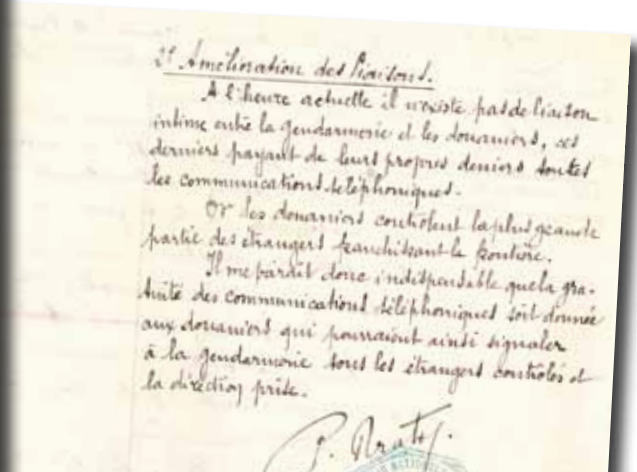 2° Amélioration des liaisons.
A l'heure actuelle il n'existe pas de liaison
intime entre la gendarmerie et les douaniers, ces
derniers payant de leurs propres deniers toutes
les communications téléphoniques.
Or les douaniers contrôlent la plus grande
partie des étrangers franchissant la frontière.
Il me paraît donc indispensable que la gra-
tuité des communications téléphoniques soit donnée
aux douaniers qui pourraient ainsi signaler
à la gendarmerie tous les étrangers contrôlés et
la direction prise.